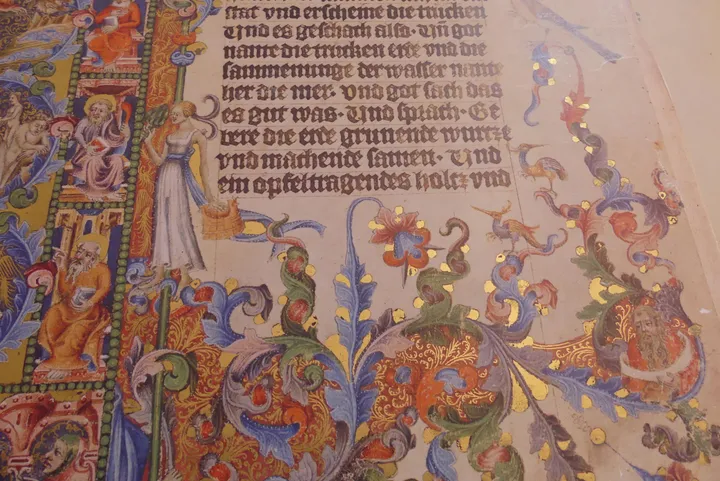 stat vnd erscheine die trucken
Vnd es geschach also· Vn̄ got
nante die trucken erde vnd die
sammenunge der wasser nante
her die mer· vnd got sach das
es gut was· Vnd sprach· Ge
bere die erde grunende wurtze
vnd machende samen· Vnd
ein opfeltragendes holtz vnd